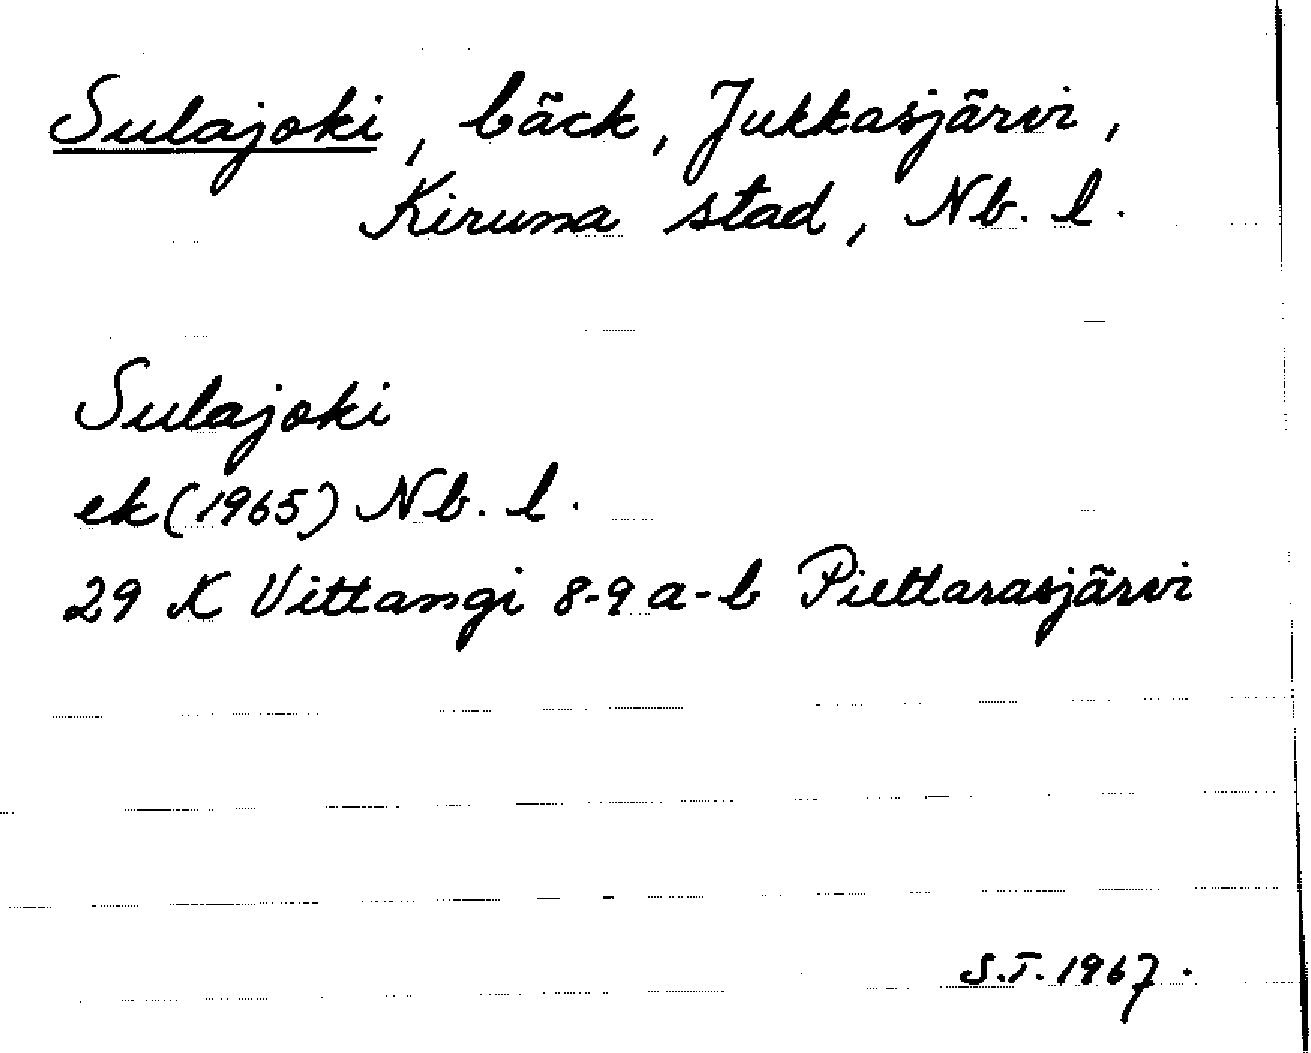 Sulajoki, bäck, Jukkasjärvi,
Kiruna stad, Nb. l.
Sulajoki
ek (1965) Nb. l.
29 K Vittangi 8-9 a-b Piettarasjärvi
S.T. 1967.